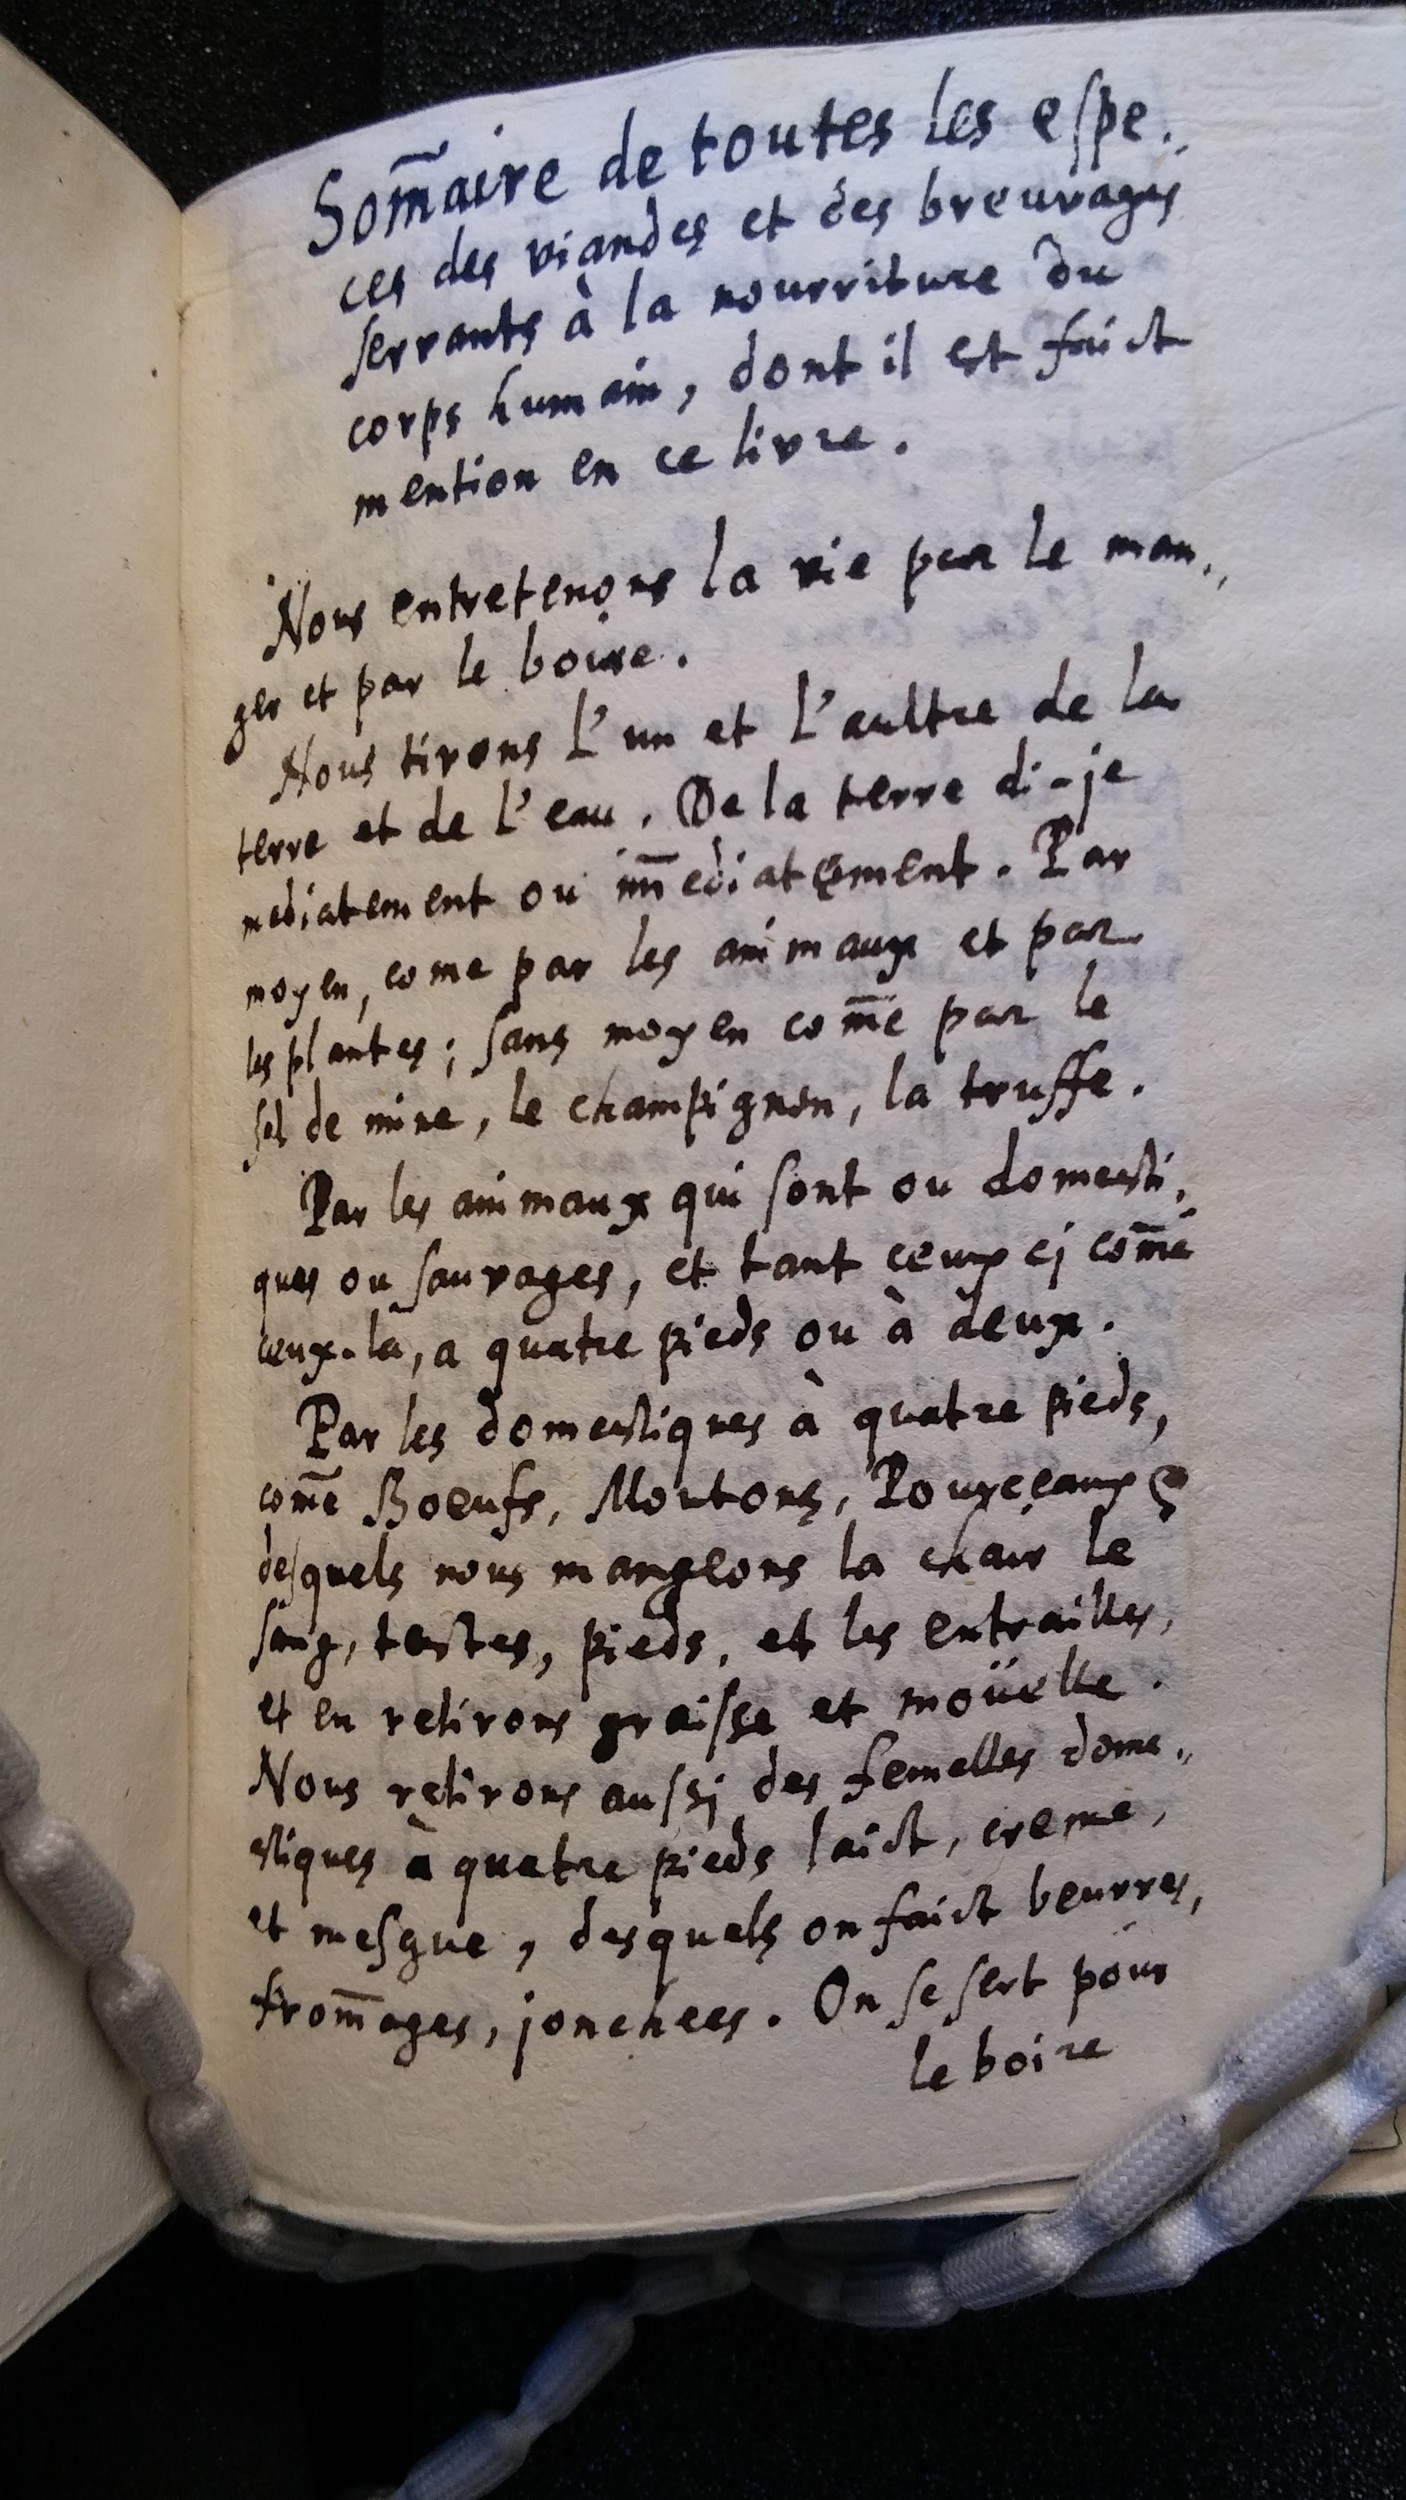 Som̄aire de toutes les eſpe..
ces des viandes et des breuvages
ſervants à la nourriture du
corps humain, dont il est faict
mention en ce livre.
Nous entretenons la vie par le man..
ger et par le boire.
Nous tirons l'un et l'aultre de la
terre et de l'eau. De la terre di-je
mediatement ou im̄ediatement. Par
moyen, come par les animaux et par
les plantes; ſans moyen com̄e par le
ſel de mine, le champignon, la truffe.
Par les animaux qui ſont ou domesti..
ques ou ſauvages, et tant ceux cj com̄e
ceux-là, a quatre pieds ou à deux.
Par les domestiques à quatre pieds,
com̄e Boeufs, Moutons, Pourceaux
deſquels nous mangeons la chair le
ſang, testes, pieds, et les entrailles,
et en retirons graiſse et moüelle.
Nous retirons auſsj des femelles dome..
stiques à quatre pieds laict, creme,
et meſgue, desquels on faict beurres,
from̄ages, jonchees. On se ſert pour
le boire